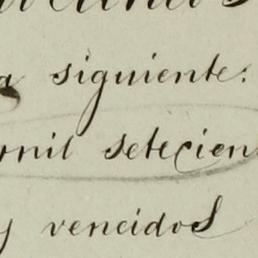 a siguiente:
mil setecien
y vencidos